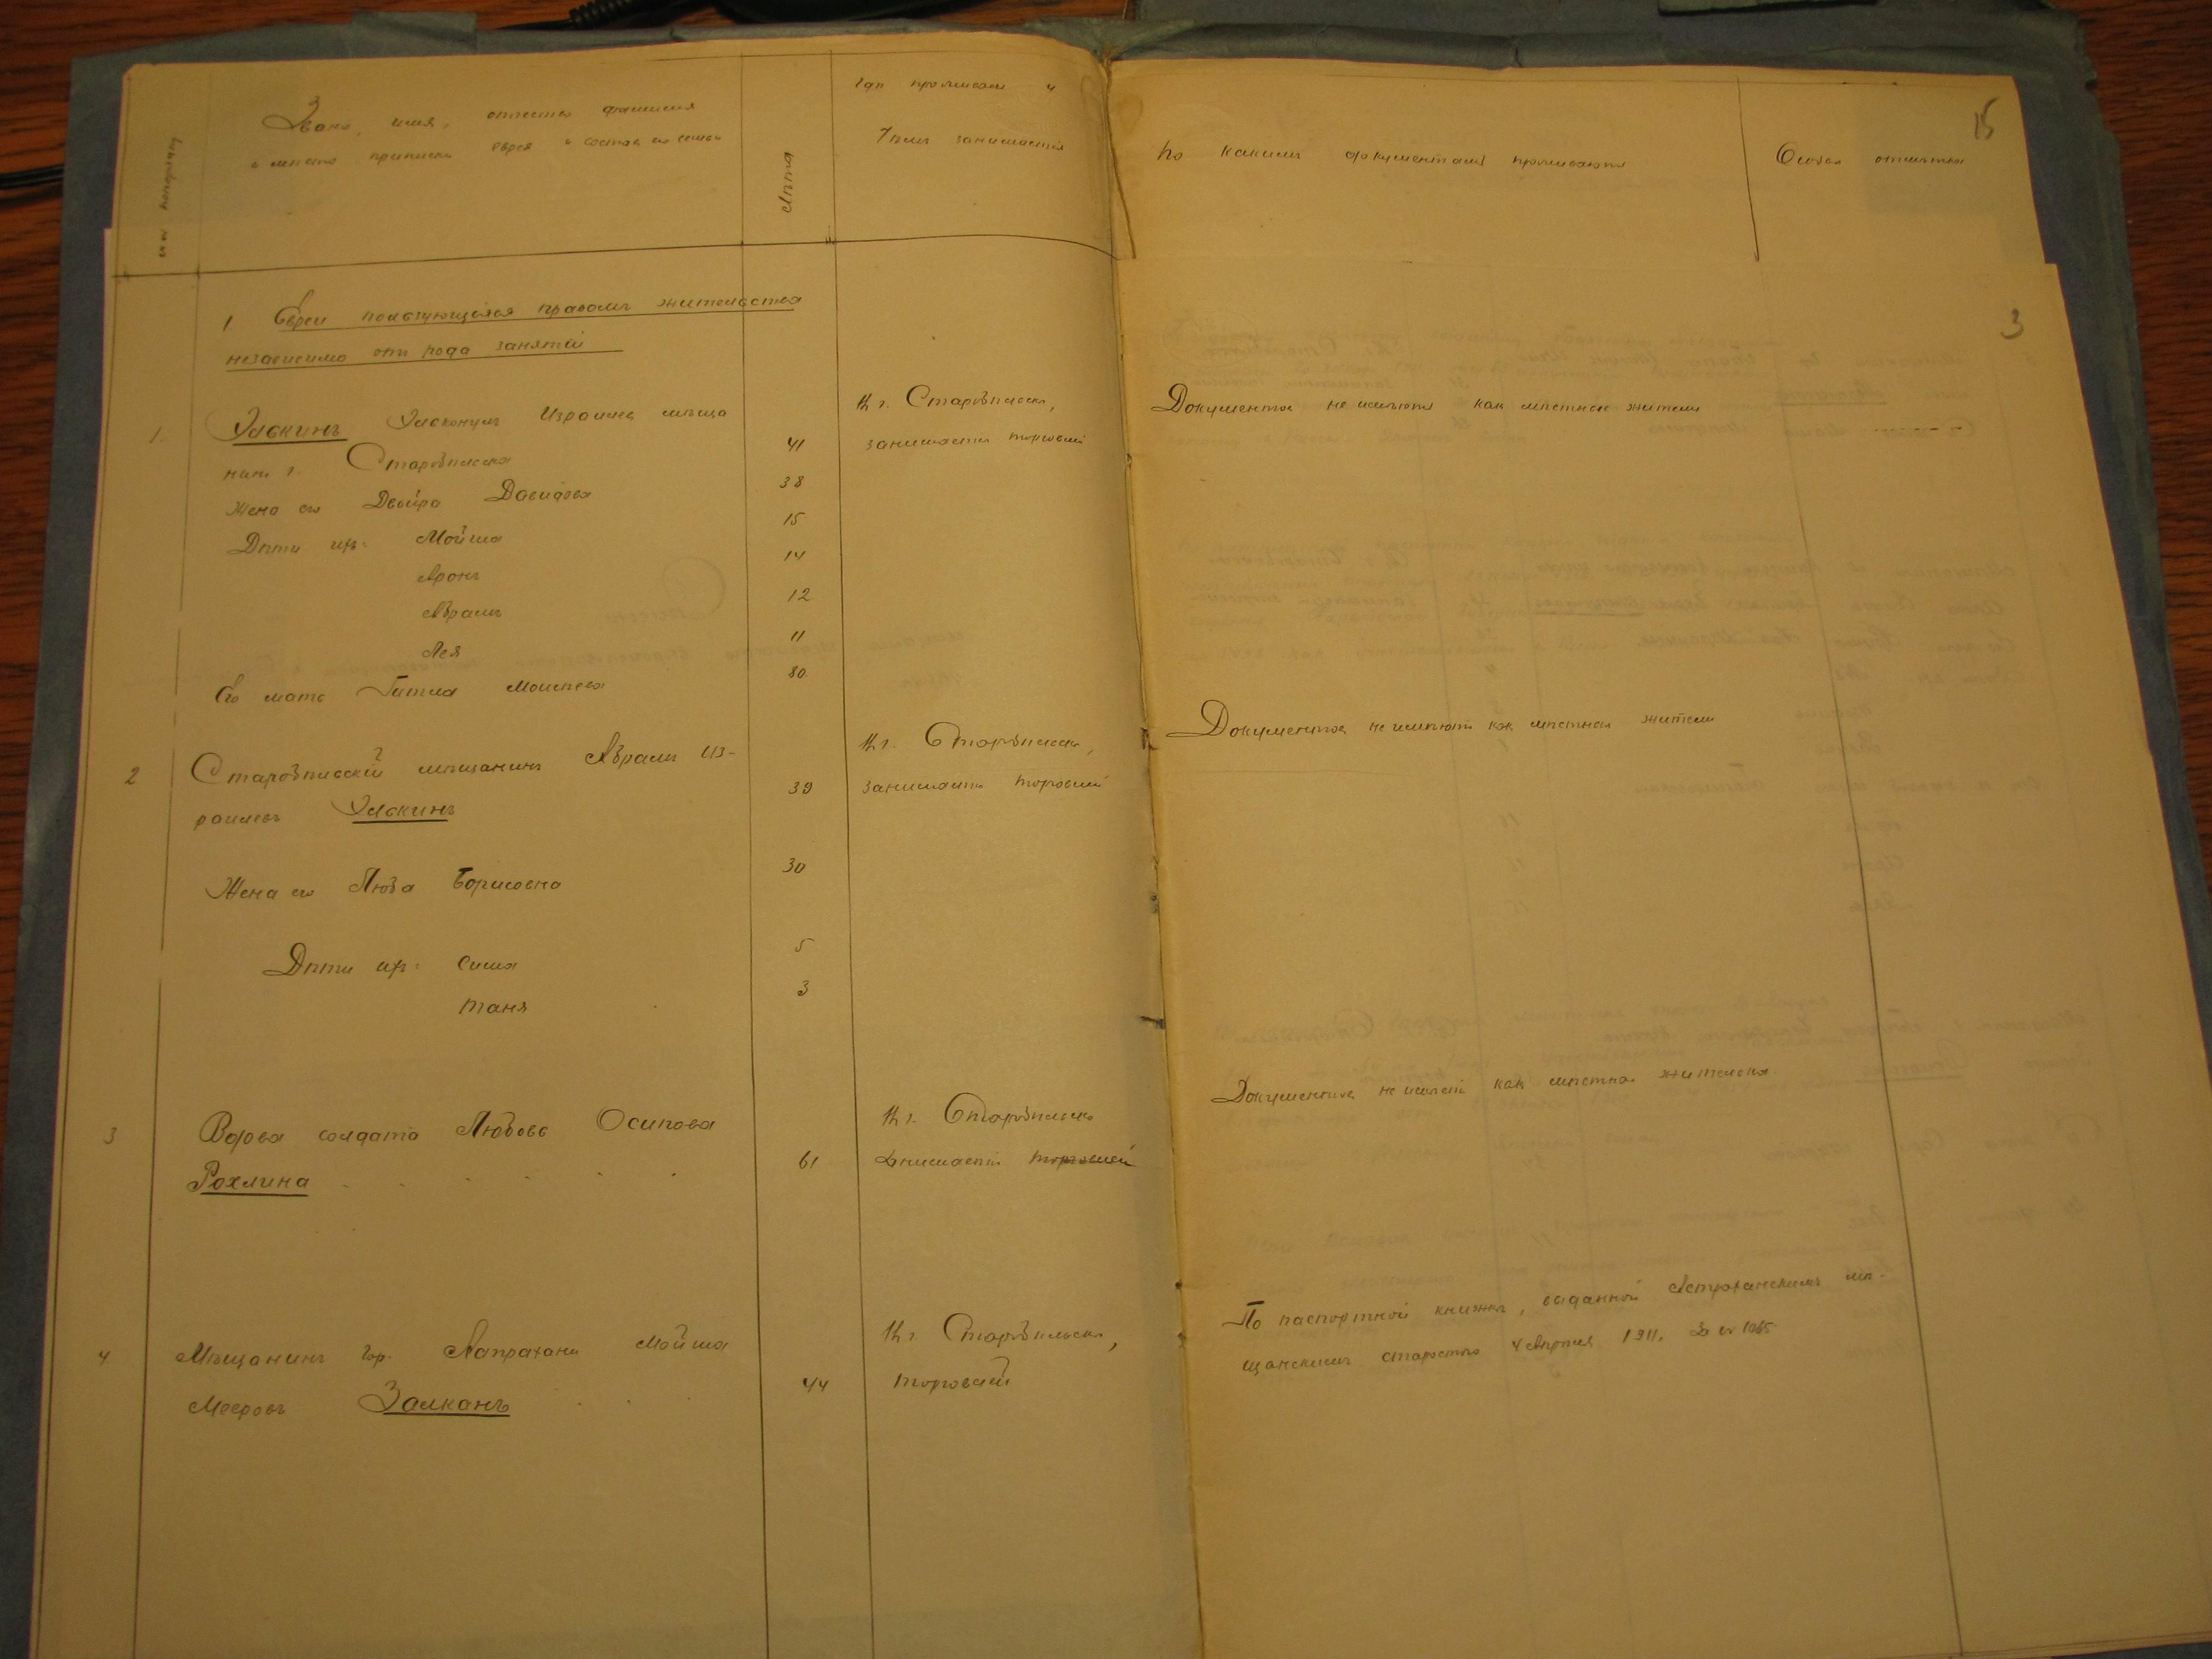 №№ по порядку
Званіе, имя, отчество фамилія
и мѣсто приписки еврея и составъ его семьи
Лѣта
Гдѣ проживаетъ и
чѣмъ занимается
По какимъ документамъ проживаютъ
Особыя отмѣтки
15
3
1 Евреи пользующіеся правомъ жительства
независимо отъ рода занятій
1. Израилевъ мѣща
нинъ г. Старобѣльска 41
Въ г. Старобѣльскѣ,
занимается торговлей
Документовъ не имѣютъ какъ мѣстные жители
Жена его Двойра Давидова 38
Дѣти ихъ: Мойша 15
Аронъ 14
Абрамъ 12
Лея 11
Его мать Гитла Моисеева 80
2 Старобѣльскій мѣщанинъ Абрамъ Из-
раилевъ 39
Въ г. Старобѣльскѣ,
занимается торговлей
Документовъ не имѣютъ какъ мѣстные жители
Жена его Люба Борисовна 30
Дѣти ихъ: Сима 5
Таня 3
3 Вдова солдата Любовь Осипова
Рохлина 61
Въ г. Старобѣльскѣ
занимается торговлей
Документовъ не имѣетъ какъ мѣстная жителька
4 Мѣщанинъ гор. Мойша
Мееровъ Залканъ 44
Въ г. Старобѣльскѣ,
торговлей
По паспортной книжкѣ, выданной Астраханскимъ мѣ-
щанскимъ старостою 4 1911. За №